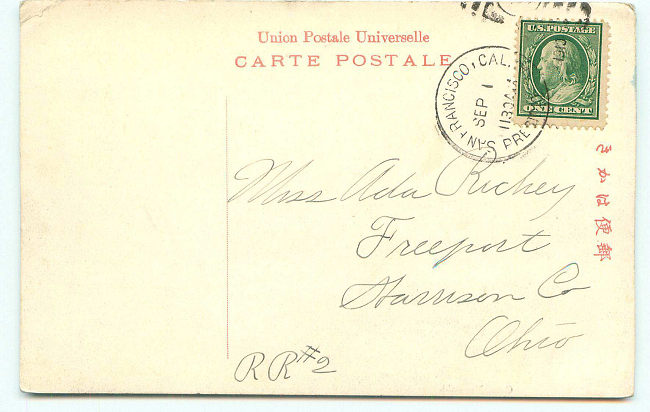 Union Postale Universelle
CARTE POSTALE
U.S. POSTAGE
ONE CENT
SAN FRANCISCO, CAL.
SEP 1
1130AM
Miss Ada Richey
Freeport
Harrison Co
Ohio
RR #2
きかは便郵